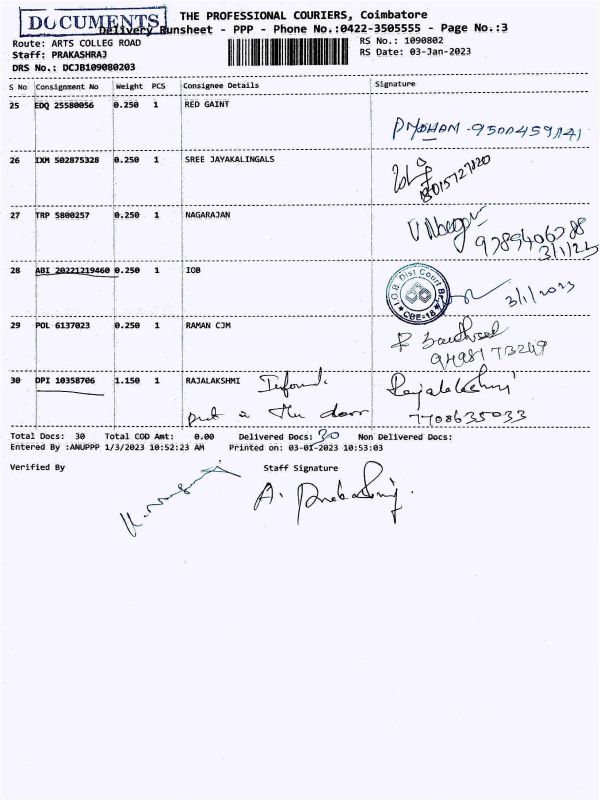 DOCUMENTS
THE PROFESSIONAL COURIERS, Coimbatore
Delivery Runsheet - PPP - Phone No.:0422-3505555 - Page No.:3
Route: ARTS COLLEG ROAD
RS No.: 1090802
Staff: PRAKASHRAJ
RS Date: 03-Jan-2023
DRS No.: DCJB109080203
S No Consignment No Weight PCS Consignee Details Signature
25 EDQ 25580056 0.250 1 RED GAINT
P MOHAN - 9500459841
26 IXM 502875328 0.250 1 SREE JAYAKALINGALS
8015727820
27 TRP 5800257 0.250 1 NAGARAJAN
3/1/23
28 ABI 20221219460 0.250 1 IOB
I.O.B. Dist Court Br. CBE-18
3/1/2023
29 POL 6137023 0.250 1 RAMAN CJM
9498173249
30 DPI 10358706 1.150 1 RAJALAKSHMI Rajalakshmi
put in the door 7708635033
Total Docs: 30 Total COD Amt: 0.00 Delivered Docs: 30 Non Delivered Docs:
Entered By :ANUPPP 1/3/2023 10:52:23 AM Printed on: 03-01-2023 10:53:03
Verified By Staff Signature